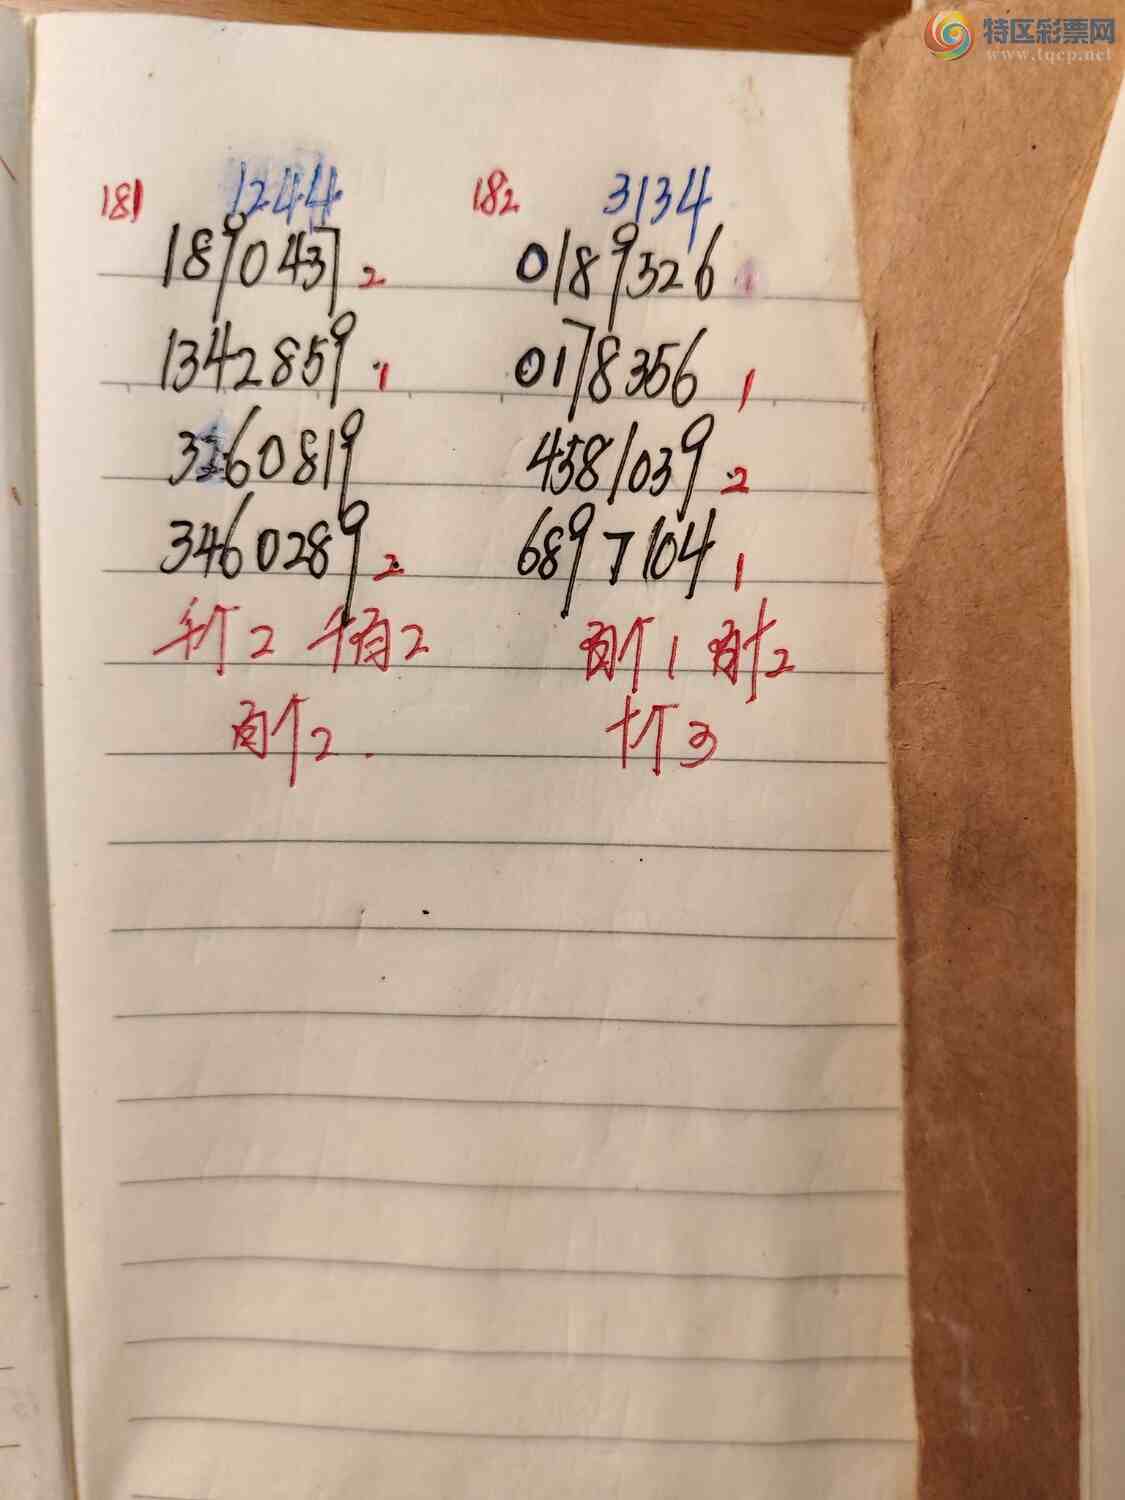 特区彩票网
www.tqcp.net
181 1244
1890437 2
1342859 1
3260819
3460289 2
千个2 千百2
百个2
182 3134
0189326
0178356 1
4581039 2
6897104 1
百个1 百十2
十个3